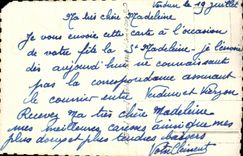 Verdun le 19 juillet
Ma très chère Madeleine
Je vous envoie cette carte à l'occasion
de votre fête la Ste Madeleine - je l'envoie
dès aujourd'hui ne connaissant
pas la correspondance assurant
le courrier entre Verdun et
Recevez Ma très chère Madeleine
mes meilleures caresses ainsi que mes
plus doux et plus tendres baisers
Votre Clément